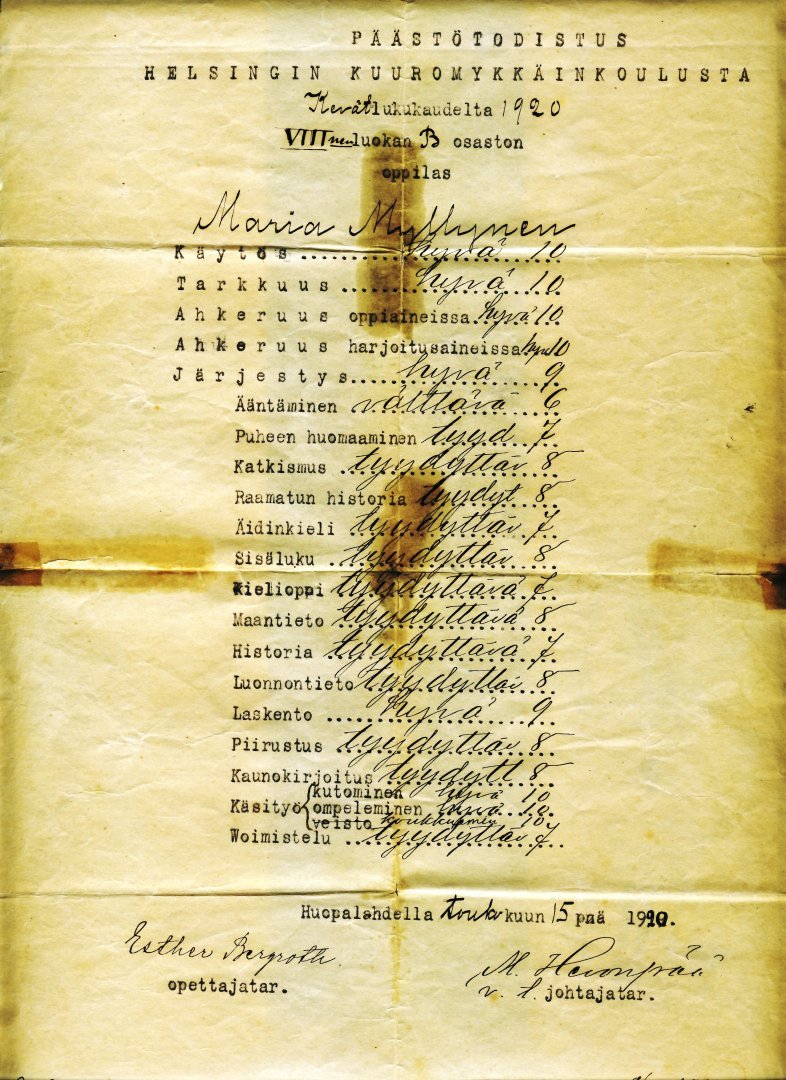 PÄÄSTÖTODISTUS
HELSINGIN KUUROMYKKÄINKOULUSTA
Kevätlukukaudelta 1920
VIIInen luokan B osaston
oppilas
Maria Myllynen
Käytös..........hyvä 10
Tarkkuus........hyvä 10
Ahkeruus oppiaineissa hyvä 10
Ahkeruus harjoitusaineissa hyvä 10
Järjestys.......hyvä 9
Ääntäminen välttävä 6
Puheen huomaaminen tyyd. 7
Katkismus tyydyttäv 8
Raamatun historia tyydyt 8
Äidinkieli tyydyttäv 7
Sisäluku tyydyttäv 8
Kielioppi tyydyttävä 7
Maantieto tyydyttävä 8
Historia tyydyttävä 7
Luonnontieto tyydyttäv 8
Laskento ....... hyvä 9
Piirustus tyydyttäv 8
Kaunokirjoitus tyydytt 8
Käsityö { kutominen hyvä 10
ompeleminen hyvä 10
veisto virkkuumin 10
Woimistelu tyydyttäv 7
Huopalahdella toukokuun 15 pnä 1920.
Esther Bergroth.
opettajatar.
M. Hevonpää
v. t. johtajatar.